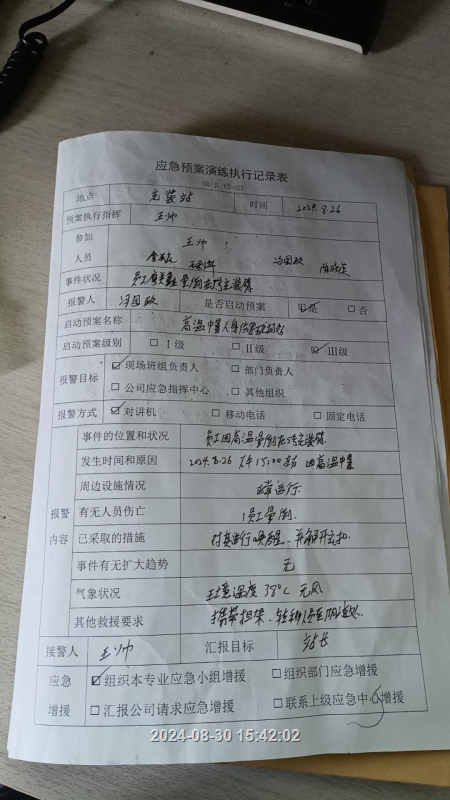 应急预案演练执行记录表
地点 充装站 时间 2024.8.26
预案执行指挥 王帅
参加 王帅
人员 冯国政
事件状况
报警人 冯国政 是否启动预案 ☑是 □否
启动预案名称 高温中暑人身伤害
启动预案级别 □Ⅰ级 □Ⅱ级 ☑Ⅲ级
报警目标 ☑现场班组负责人 □部门负责人
□公司应急指挥中心 □其他组织
报警方式 ☑对讲机 □移动电话 □固定电话
报警内容 事件的位置和状况 员工因高温晕倒在
发生时间和原因 2024.8.26 下午15:00左右 因高温中暑
周边设施情况 正常运行
有无人员伤亡 1员工晕倒.
已采取的措施 对其进行唤醒、并解开衣扣
事件有无扩大趋势 无
气象状况 环境温度38℃ 无风
其他救援要求 携带担架、转移伤者至阴凉处
接警人 王帅 汇报目标 站长
应急 ☑组织本专业应急小组增援 □组织部门应急增援
增援 □汇报公司请求应急增援 □联系上级应急中心增援
2024-08-30 15:42:02